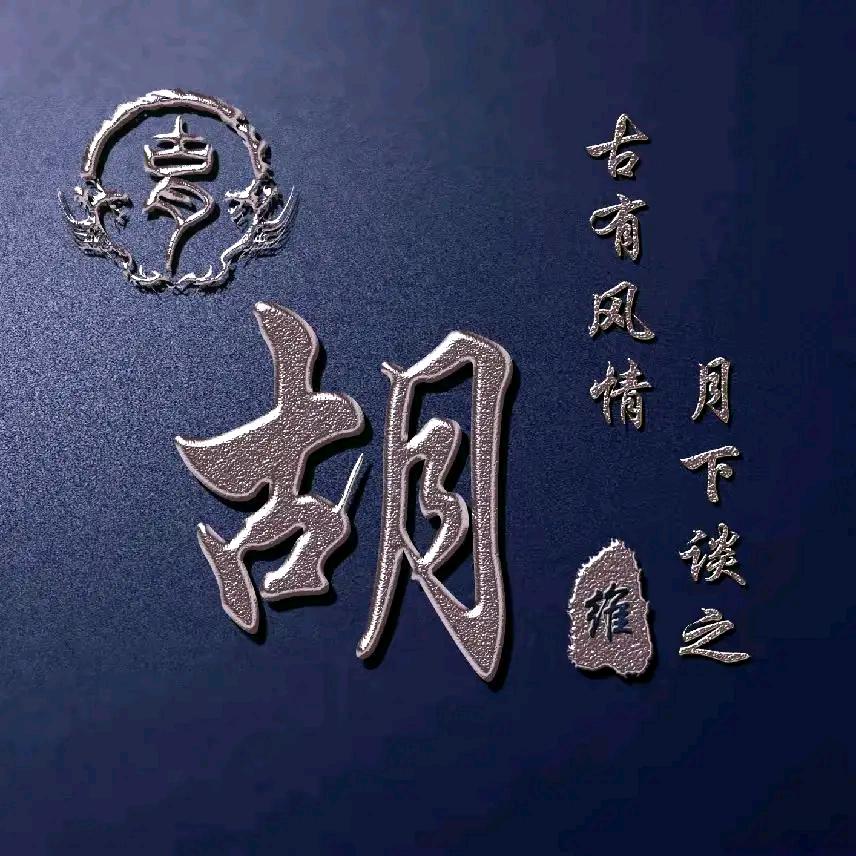 胡
古有风情
月下谈之
维